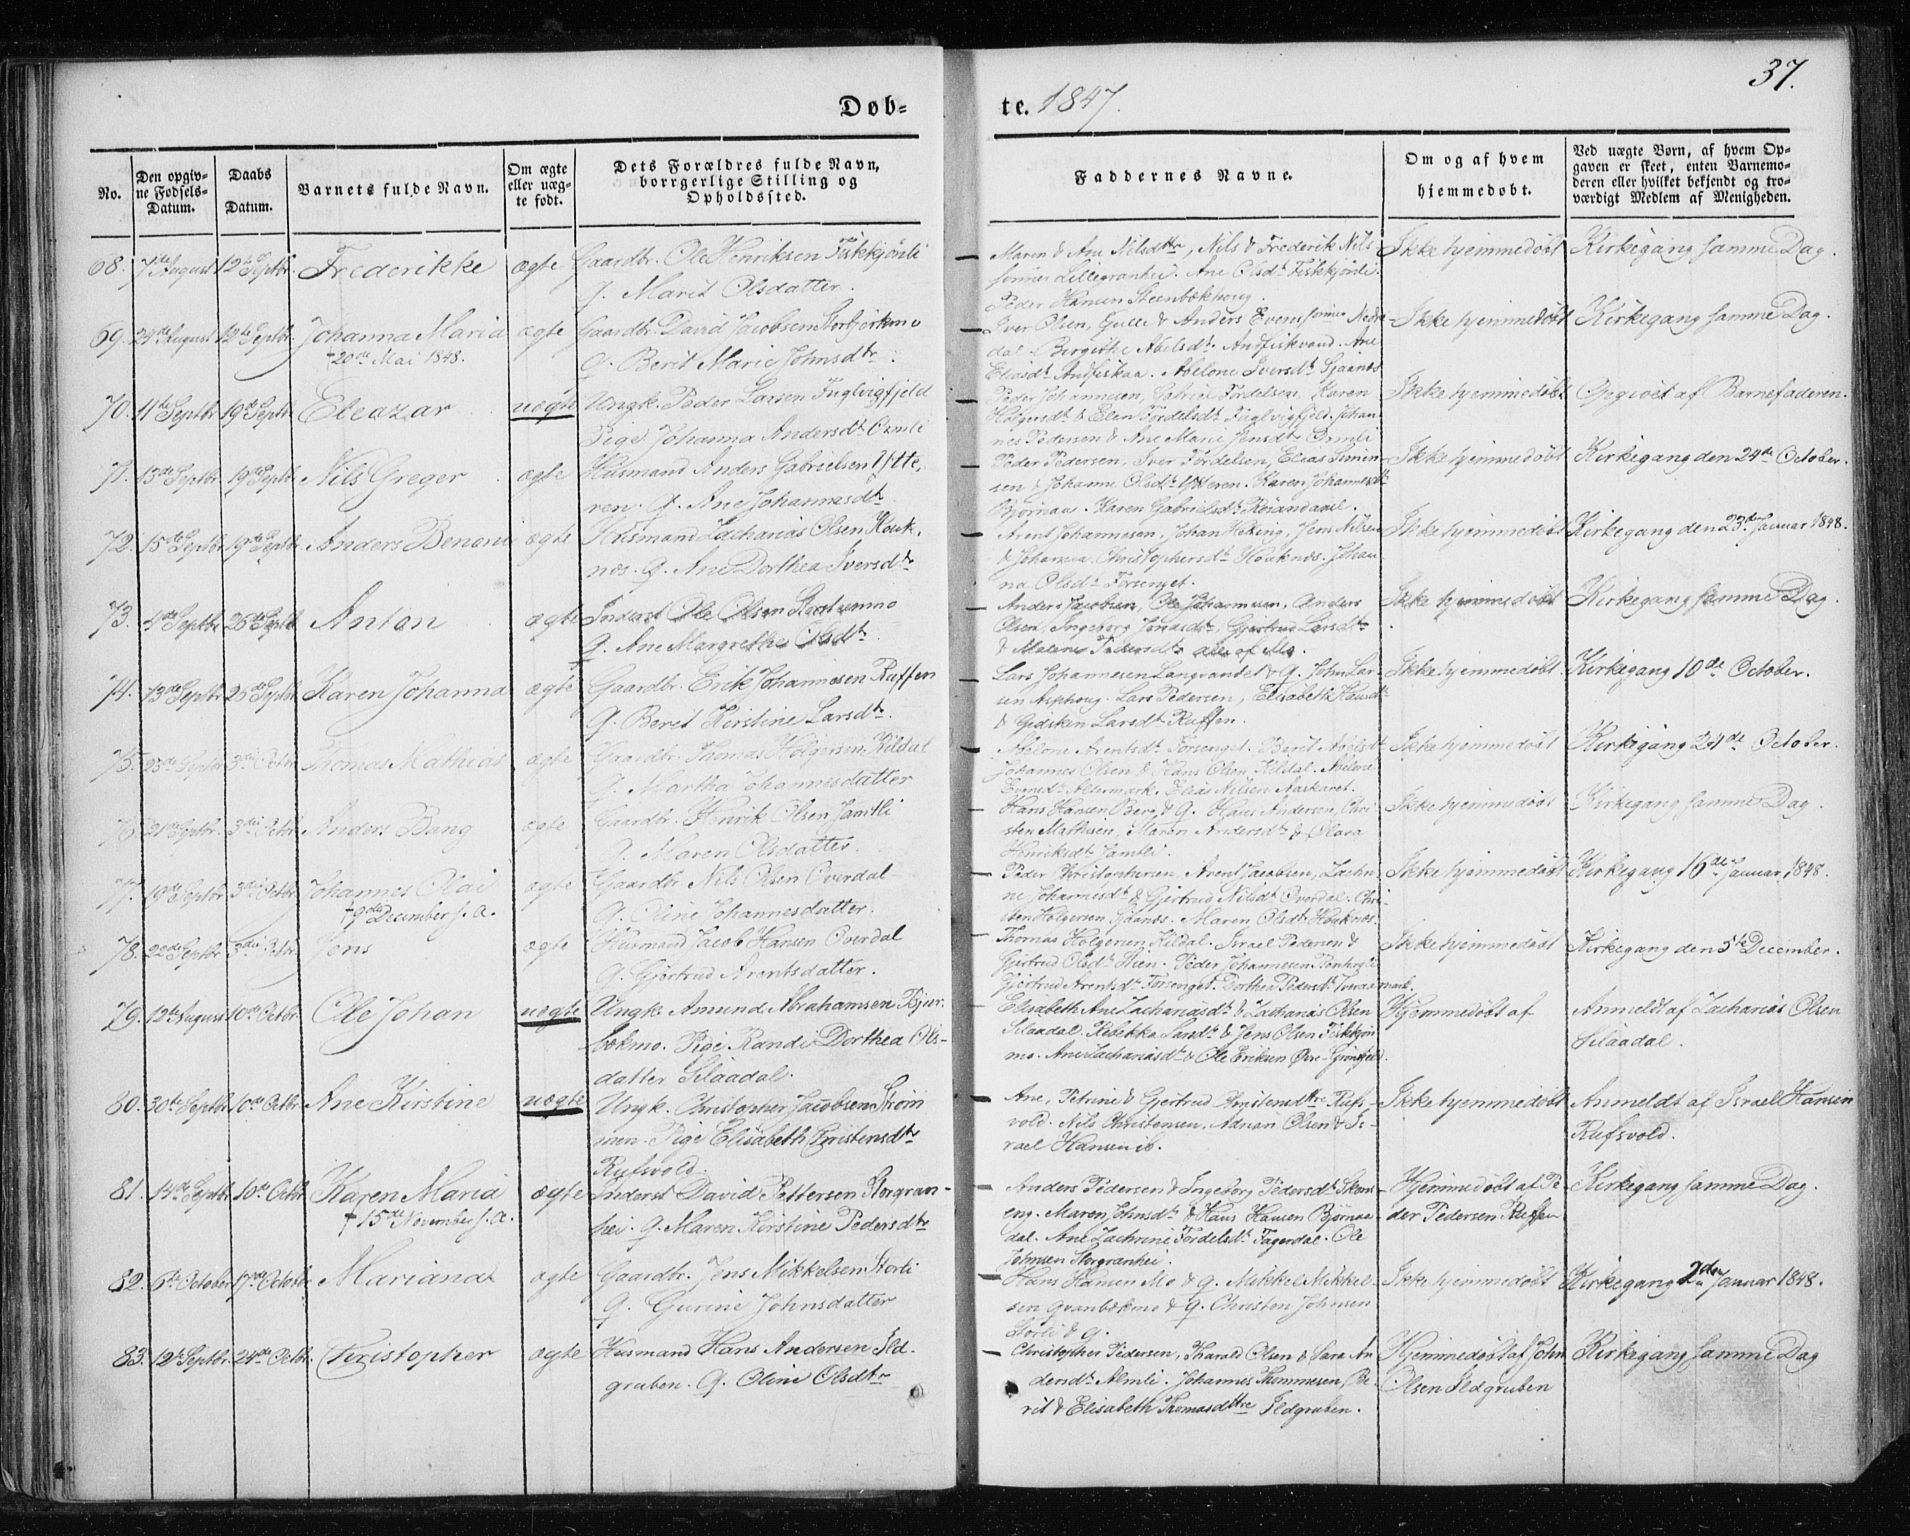 37.
Døb-
te. 1847.
No.
Den opgiv-
ne Fødsels-
Datum.
Daabs
Datum.
Barnets fulde Navn.
Om ægte
eller uæg-
te født.
Dets Forældres fulde Navn,
borrgerlige Stilling og
Opholdssted.
Faddernes Navne.
Om og af hvem
hjemmedøbt.
Ved uægte Børn, af hvem Op-
gaven er skeet, enten Barnemo-
deren eller hvilket bekjendt og tro-
værdigt Medlem af Menigheden.
68. 7de August 12te Septbr. Frederikke ægte Gaardbr. Ole Henriksen Fiskkjønli
Q. Marit Olsdatter.
Maren & Ane Nilsdttr, Nils & Frederik Nils-
sønner Lillegranhei. Ane Olsdt. Fiskkjønli.
Peder Hansen Steenbækhoug.
Ikke hjemmedøbt Kirkegang samme Dag.
69. 24de August 12te Septbr. Johanna Maria ægte Gaardbr. David Jacobsen
† 20de Mai 1848.
Q. Berit Marie Johnsdtr.
Iver Olsen, Gulle & Anders Evensønner Nedre
dal. Bergithe Abelsdt. Andfiskvand. Ane
Eliasdt. Andfiskaa. Abelone Iversdt.
Ikke hjemmedøbt Kirkegang samme Dag.
70. 11te Septbr 19de Septbr Eleazar uægte Ungk. Peder Larsen Fuglvigfjeld
Pige Johanna Andersdt.
Peder Johannesen, Gabriel Fordelsen, Karen
Holgersdt. & Elen Fordelsdt. Fuglvigfjeld. Johan-
nes Pedersen & Ane Marie Jensdt.
Ikke hjemmedøbt Opgivet af Barnefaderen.
71. 13de Septbr 19de Septbr Nils Greger ægte Husmand Anders Gabrielsen Ytte-
ren. Q. Ane Johannesdt.
Peder Pedersen, Iver Fordelsen, Elias Simen-
sen & Johanne Olsdt. Ytteren. Karen Johannesdt.
Bjørnaa. Karen Gabrielsdt. Røsandaasl.
Ikke hjemmedøbt Kirkegang den 24de October.
72. 15de Septbr 19de Septbr. Anders Benoni ægte Husmand Zacharias Olsen Houk-
nes. Q. Ane Dorthea Iversdtr
Arent Johannesen, Johan Heking, Jens Nilsen
& Johanna Christophersdt. Houknes. Johan-
na Olsdt. Forsenget.
Ikke hjemmedøbt Kirkegang den 23de Januar 1848.
73. 4de Septbr 26de Septbr Anton ægte Inderst Ole Olsen
Q. Ane Margrethe Olsdtr.
Anders Jacobsen, Ole Johannesen, Anders
Olsen, Ingeborg Jonasdt., Gjertrud Larsdt.
& Malene Pedersdtr alle af Mo.
Ikke hjemmedøbt Kirkegang samme Dag
74. 13de Septbr 26de Septbr Karen Johanna ægte Gaardbr. Erik Johannesen Ruffen
Q. Berit Kirstine Larsdt.
Lars Johannesen Langrandet & Q. John Lar-
sen Asphoug. Lars Pedersen, Elisabeth Hansdt
& Gidsken Larsdt Ruffen.
Ikke hjemmedøbt Kirkegang 10de October.
75. 23de Septbr 3die Octbr Thomas Mathias ægte Gaardbr. Thomas Holgersen Kildal
Q. Martha Johannesdatter
Abelone Arentsdt. Forsenget. Berit Abelsdt
Johannes Olsen & Hans Olsen Kildal. Abelone
Evensdt. Altermark. Elias Nilsen Aaskaret.
Ikke hjemmedøbt Kirkegang 24de October.
76. 21de Septbr. 3die Octbr. Anders Bang ægte Gaardbr. Henrik Olsen Jamtli
Q. Maren Olsdatter.
Hans Hansen Berg & Q. Hans Andersen, Chri-
sten Mathisen, Maren Andersdt. & Olara
Henriksdt. Jamtli.
Ikke hjemmedøbt Kirkegang samme Dag.
77. 19de Septbr 3die Octbr. Johannes Olai ægte Gaardbr. Nils Olsen Overdal
† 9de December s. A.
Q. Oline Johannesdatter.
Peder Christophersen, Arent Jacobsen,
ne Johannesdt. & Gjertrud Nilsdt. Overdal. Chri-
sten Holgersen. Maren Olsdt. Houknes.
Ikke hjemmedøbt Kirkegang 16de Januar 1848.
78. 22de Septbr 3die Octbr. Jens ægte Husmand Jacob Hansen Overdal
Q. Gjertrud Arentsdatter.
Thomas Holgersen Kildal. Israel Pedersen &
Gjertrud Olsdt. Steen. Peder Johannesen
Gjertrud Arentsdt. Forsenget. Dorthea Pedersdt.
Ikke hjemmedøbt Kirkegang den 5te December.
79. 12te August 10de Octbr. Ole Johan uægte Ungk. Amund Abrahamsen Bjur-
bækmo. Pige Randi Dorthea Ols-
datter Silaadal.
Elisabeth Ane Zachariasdt. & Zacharias Olsen
Silaadal. Rebekka Larsdt. & Jens Olsen Fiskkjøn
mo. Ane Zachariasdt. & Ole Eriksen Øvre-Grønfjeld.
Hjemmedøbt af
Anmeldt af Zacharias Olsen
Silaadal.
80. 30te Septbr 10de Octbr. Ane Kirstine uægte Ungk. Christopher Jacobsen Strøm
men. Pige Elisabeth Christensdtr
Rufsvold.
Ane, Petrine & Gjertrud Christensdttre Rufs-
vold. Nils Christensen, Adrian Olsen & Is-
rael Hansen ib.
Ikke hjemmedøbt Anmeldt af Israel Hansen
Rufsvold.
81. 14de Septbr. 10de Octbr Karen Maria ægte Inderst David Pettersen Storgran-
† 15de November s. A.
hei. Q. Maren Kirstine Pedersdtr
Anders Pedersen & Ingeborg Pedersdt.
eng. Maren Johnsdt. & Hans Hansen Bjørnaa-
dal. Ane Zachrine Fordelsdt. Fagerdal. Ole
Johnsen Storgranhei.
Hjemmedøbt af Pe-
der Pedersen Ruffen
Kirkegang samme Dag.
82. 6te October 17de October Mariana ægte Gaardbr. Jens Mikkelsen Storli
Q. Gurine Johnsdatter
Hans Hansen Mo & Q. Mikkel Mikkel-
sen Granbækmo & Q. Christen Johnsen
Storli & Q.
Ikke hjemmedøbt Kirkegang 2den Januar 1848.
83. 12te Septbr. 24de Octbr. Christopher ægte Husmand Hans Andersen Ild-
gruben. Q. Oline Olsdtr
Christopher Pedersen, Harald Olsen & Sara An-
dersdt. Almli. Johannes Thommesen, Be-
rit & Elisabeth Thomasdttre Ildgruben.
Hjemmedøbt af John
Olsen Ildgruben
Kirkegang samme Dag